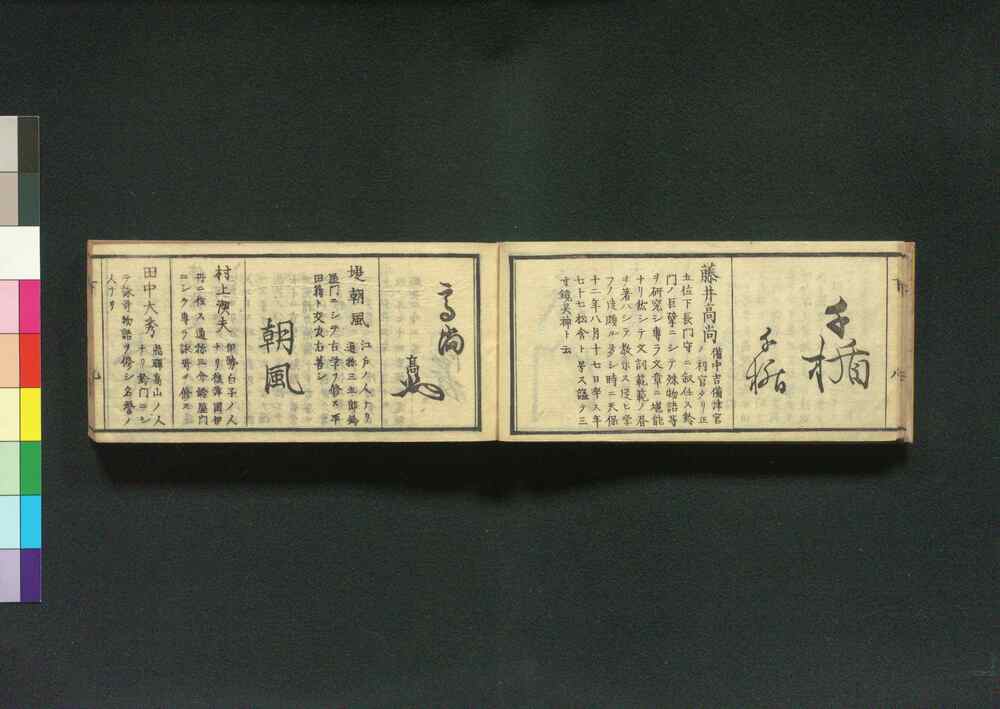 千楯
千楯
藤井高尚
備中吉備津宮
祠官タリ正
五位下長門守ニ叙任ス鈴
門ノ巨擘ニシテ殊物語等
ヲ研究シ専ラ文章ニ堪能
ナリ故シテ文詞範範ノ書
ヲ著ハシテ教示ス従ヒ学
フノ徒頗ル多シ時ニ天保
十二年八月十七日卒ス年
七十七松舎ト号ス諡テ三
寸鏡突神ト云
高尚
高尚
堤朝風
江戸ノ人ナリ
通称三五郎鈴
屋門ニシテ古学ヲ修ス平
田篤ト交友右善シ
朝風
村上潔夫
伊勢白子ノ人
ナリ後津国伊
丹ニ住ス通称三介鈴屋門
ニシテ専ラ詠哥ヲ修ス
田中大秀
飛驒高山ノ人
ナリ鈴門ニシ
テ詠哥物語ヲ修シ名誉ノ
人ナリ